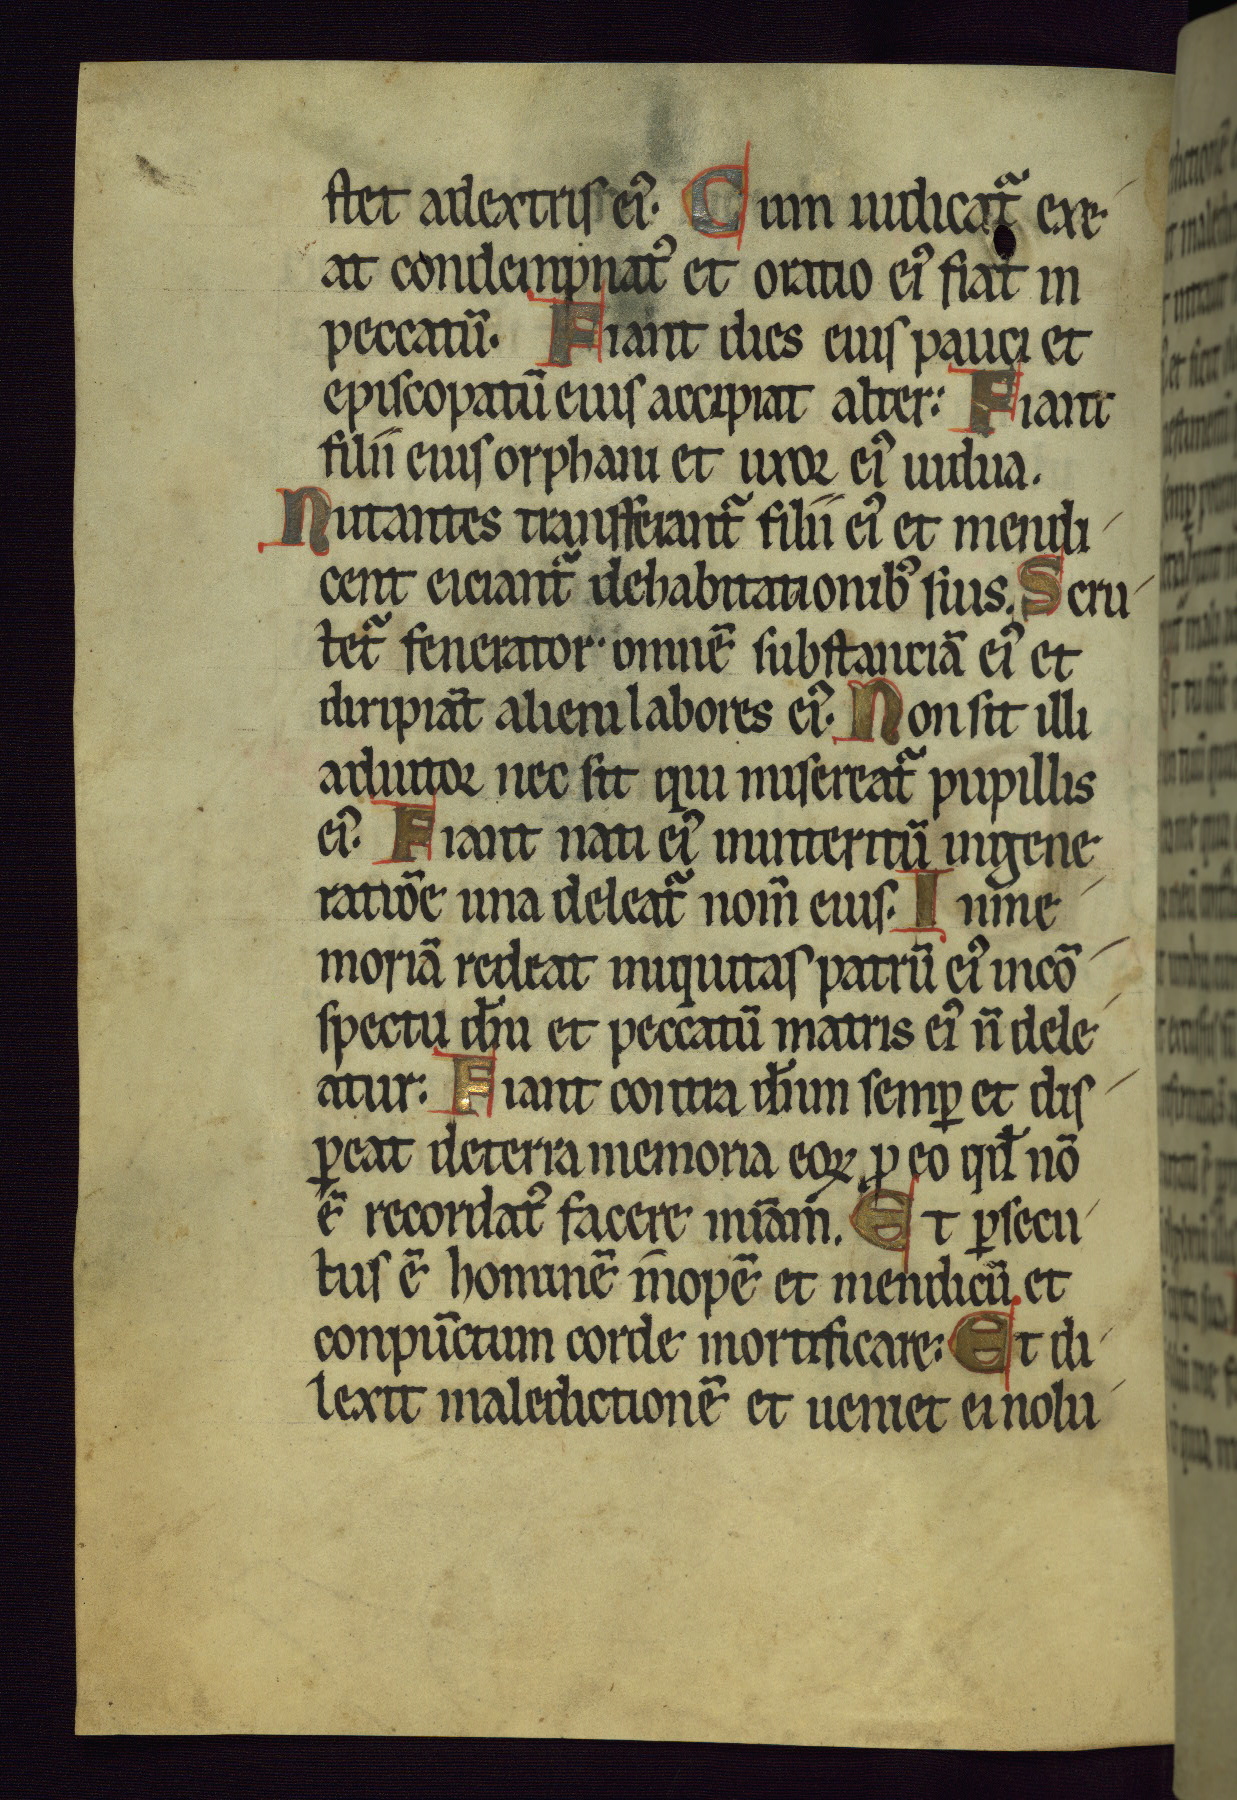 stet adextris ei᾽. Cum iudicat᷑ exe
at condempnat᾽ et oratio ei᾽ fiat in
peccatū. Fiant dies eius pauci et
episcopatū eius accipiat alter: Fiant
filii eius orphani et uxor ei᾽ uidua.
Nutantes transferant᷑ filii ei᾽ et mendi
cent eiciant᷑ dehabitationib᾽ suis. Scru
tet᷑ fenerator omnē substanciā ei᾽ et
diripiāt alieni labores ei᾽. Non sit illi
adiutor nec sit qui misereat᷑ pupillis
ei᾽. Fiant nati ei᾽ ininteritū ingene
ratiōe una deleat᷑ nom̄ eius. In me
moriā redeat iniquitas patrū ei᾽ incō
spectu dn̄i et peccatū matris ei᾽ n̄ dele
atur: Fiant contra dn̄um semꝑ et dis
ꝑeat deterra memoria eoꝝ ꝓ eo qd̄ nō
ē recordat᾽ facere mīam̄. Et ꝑsecu
tus ē hominē īnopē et mendicū et
conpūctum corde mortificare: Et di
lexit maledictionē et ueniet ei nolu